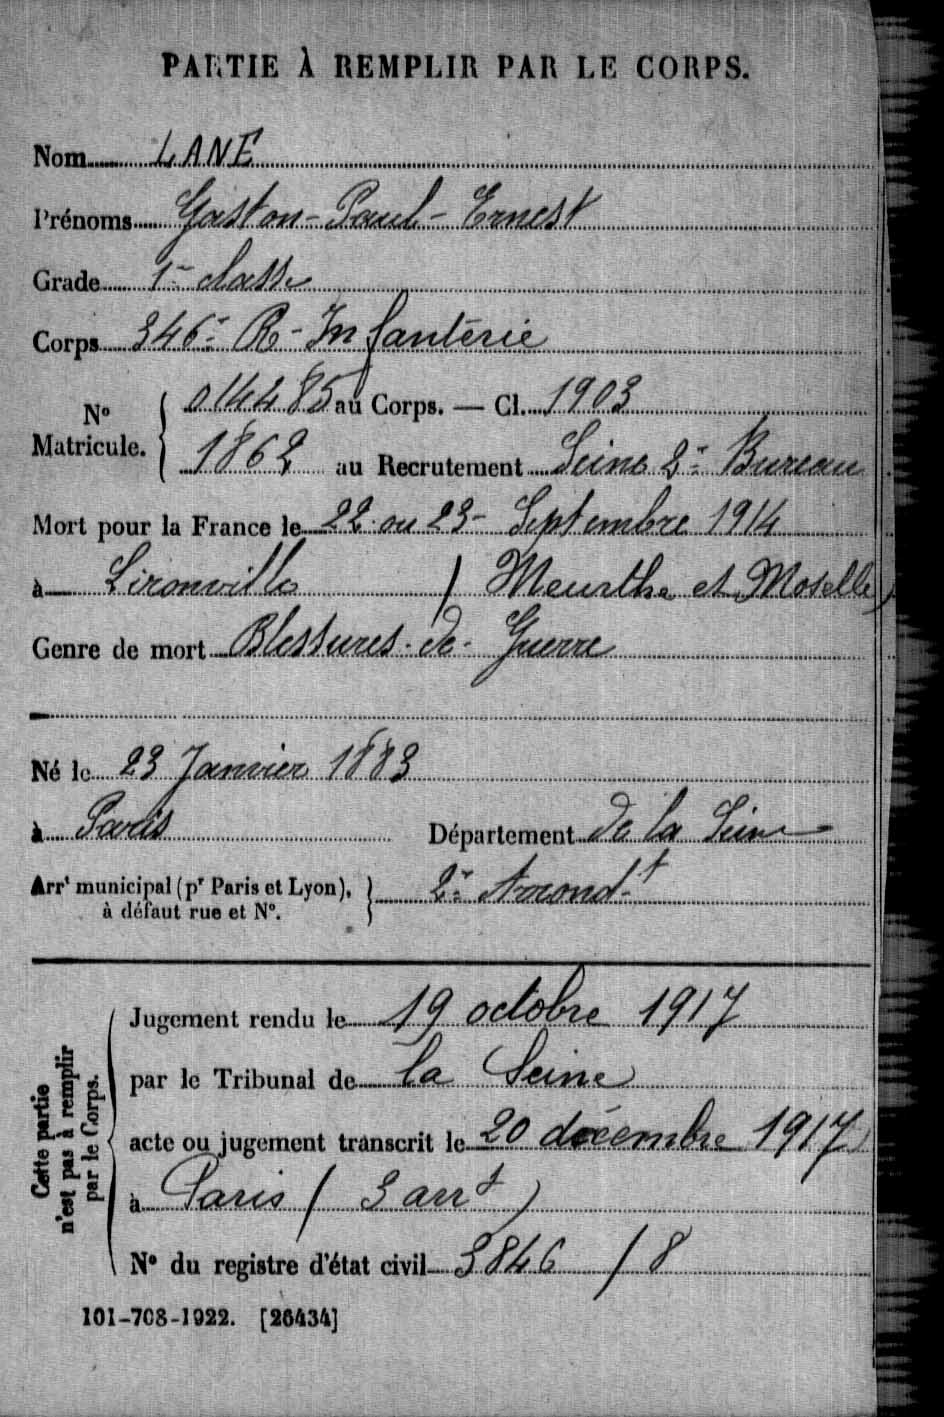 PARTIE À REMPLIR PAR LE CORPS.
Nom LANE
Prénoms Gaston-Paul-Ernest
Grade 1re classe
Corps 346e R-Infanterie
No Matricule. 014485 au Corps. — Cl. 1903
1862 au Recrutement Seine 2e Bureau
Mort pour la France le 22 ou 23 Septembre 1914
à Lironville (Meurthe et Moselle)
Genre de mort Blessures-de-Guerre
Né le 23 Janvier 1883
à Paris Département de la Seine
Arrt municipal (pr Paris et Lyon), 2e Arrond-t
à défaut rue et No.
Cette partie n'est pas à remplir par le Corps.
Jugement rendu le 19 octobre 1917
par le Tribunal de la Seine
acte ou jugement transcrit le 20 décembre 1917
à Paris (3 arrt)
No du registre d'état civil 3846 / 8
101-708-1922. [26434]